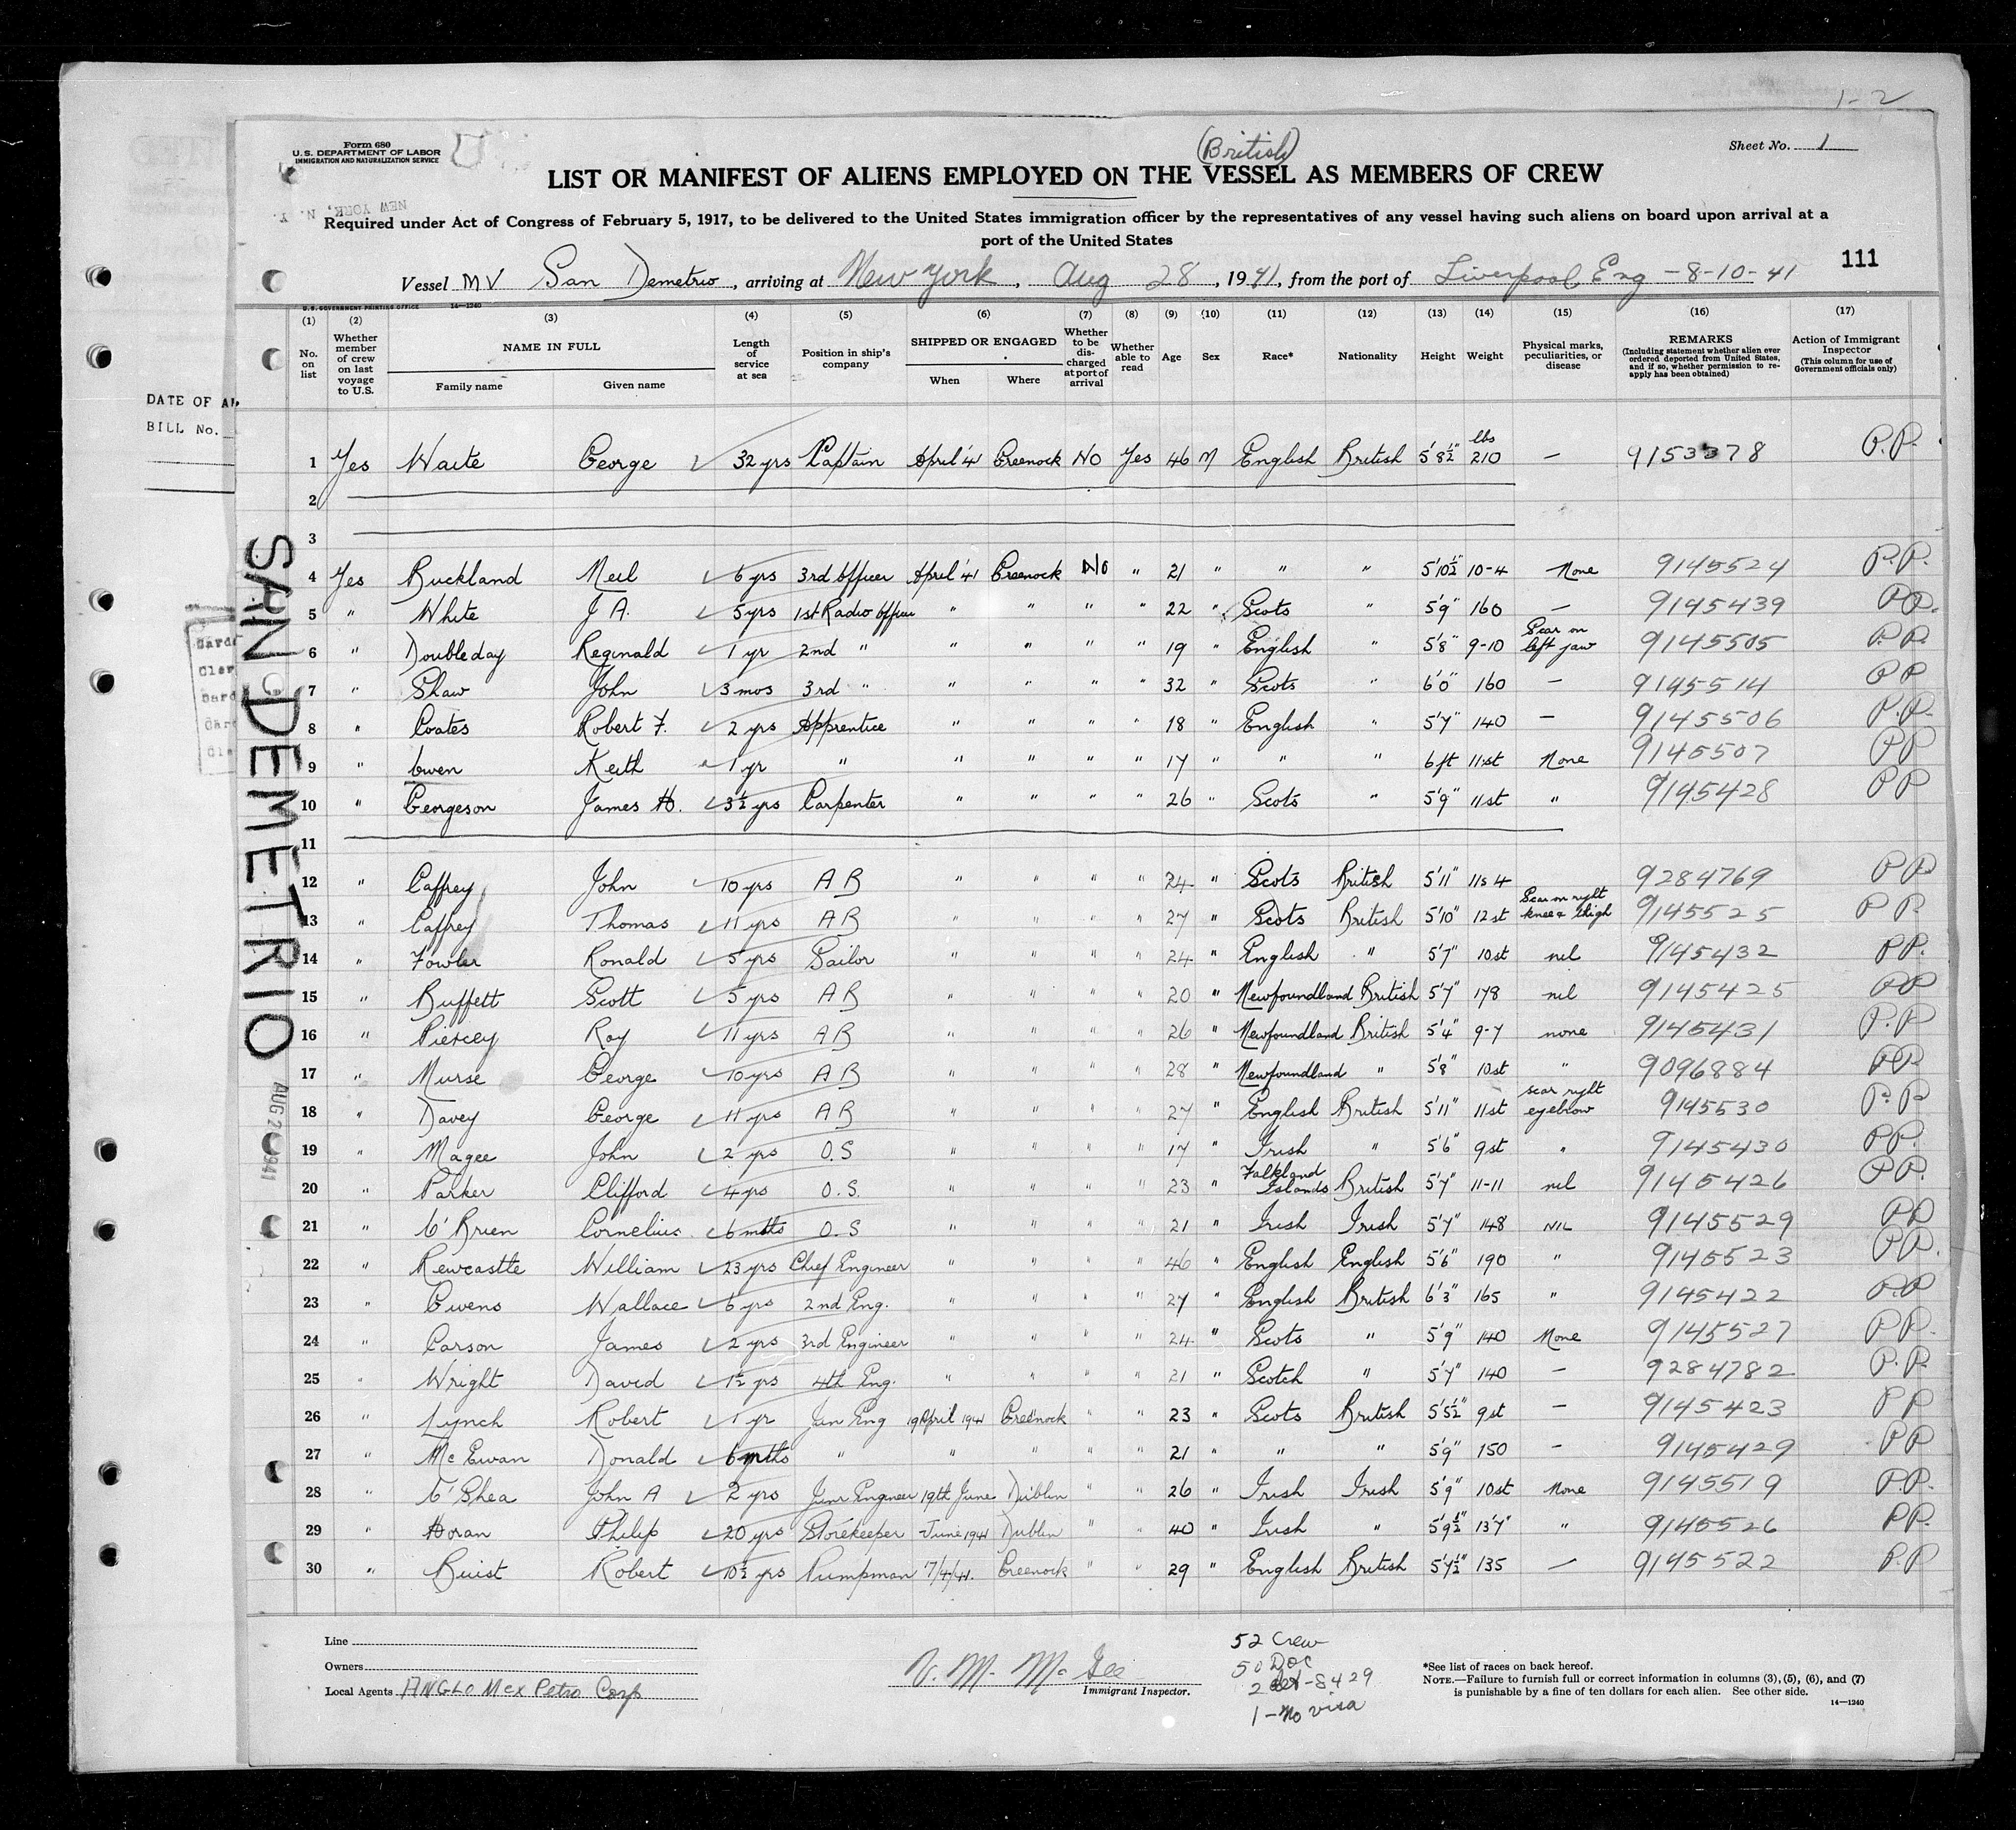 1-2
Form 680
U.S. DEPARTMENT OF LABOR
IMMIGRATION AND NATURALIZATION SERVICE
(British)
Sheet No. 1
LIST OR MANIFEST OF ALIENS EMPLOYED ON THE VESSEL AS MEMBERS OF CREW
NEW YORK, N. Y.
Required under Act of Congress of February 5, 1917, to be delivered to the United States immigration officer by the representatives of any vessel having such aliens on board upon arrival at a
port of the United States
111
Vessel MV San Demetrio, arriving at New York, Aug 28, 1941, from the port of Liverpool Eng - 8-10-41
U.S. GOVERNMENT PRINTING OFFICE 14—1240
(1) (2) (3) (4) (5) (6) (7) (8) (9) (10) (11) (12) (13) (14) (15) (16) (17)
No. on list
Whether member of crew on last voyage to U.S.
NAME IN FULL
Family name Given name
Length of service at sea
Position in ship's company
SHIPPED OR ENGAGED
When Where
Whether to be discharged at port of arrival
Whether able to read
Age Sex Race* Nationality Height Weight
Physical marks, peculiarities, or disease
REMARKS
(Including statement whether alien ever ordered deported from United States, and if so, whether permission to reapply has been obtained)
Action of Immigrant Inspector
(This column for use of Government officials only)
DATE OF
BILL No.
SAN DEMETRIO
1 Yes Waite George 32 yrs Captain April '41 Greenock No Yes 46 M English British 5'8½" lbs 210 — 9153378 P.P.
2
3
4 Yes Buckland Neil 6 yrs 3rd Officer April '41 Greenock No " 21 " " " 5'10½" 10-4 None 9145524 P.P.
5 " White J A. 5 yrs 1st Radio Officer " " " " 22 " Scots " 5'9" 160 — 9145439 P.P.
6 " Doubleday Reginald 1 yr 2nd " " " " " 19 " English " 5'8" 9-10 Scar on left jaw 9145505 P.P.
7 " Shaw John 3 mos 3rd " " " " " 32 " Scots " 6'0" 160 — 9145514 P P
8 " Coates Robert F. 2 yrs Apprentice " " " " 18 " English " 5'7" 140 — 9145506 P.P.
9 " Owen Keith 1 yr " " " " " 17 " " " 6 ft 11st None 9145507 P P
10 " Georgeson James H. 3½ yrs Carpenter " " " " 26 " Scots " 5'9" 11st " 9145428 P P
11
12 " Caffrey John 10 yrs A B " " " " 24 " Scots British 5'11" 11s 4 9284769 P P
13 " Caffrey Thomas 11 yrs A B " " " " 27 " Scots British 5'10" 12 st Scar on right knee & thigh 9145525 P P
14 " Fowler Ronald 5 yrs Sailor " " " " 24 " English " 5'7" 10st nil 9145432 P P.
15 " Buffett Scott 5 yrs A B " " " " 20 " Newfoundland British 5'7" 178 nil 9145425 P P
16 " Piercey Roy 11 yrs A B " " " " 26 " Newfoundland British 5'4" 9-7 none 9145431 P.P
17 " Murse George 10 yrs A B " " " " 28 " Newfoundland " 5'8" 10st " 9096884 P P.
18 " Davey George 11 yrs A B " " " " 27 " English British 5'11" 11st scar right eyebrow 9145530 P. P.
19 " Magee John 2 yrs O.S " " " " 17 " Irish " 5'6" 9st " 9145430 P P.
20 " Parker Clifford 4 yrs O.S. " " " " 23 " Falkland Islands British 5'7" 11-11 nil 9145426 P P.
21 " O'Brien Cornelius 6 mths O.S " " " " 21 " Irish Irish 5'7" 148 NIL 9145529 P P
22 " Rewcastle William 23 yrs Chief Engineer " " " " 46 " English English 5'6" 190 " 9145523 P P.
23 " Owens Wallace 6 yrs 2nd Eng. " " " " 27 " English British 6'3" 165 " 9145422 P.P
24 " Carson James 2 yrs 3rd Engineer " " " " 24 " Scots " 5'9" 140 None 9145527 P P.
25 " Wright David 1½ yrs 4th Eng. " " " " 21 " Scotch " 5'7" 140 — 9284782 P. P.
26 " Lynch Robert 1 yr Jun Eng 19 April 1941 Greenock " " 23 " Scots British 5'5½" 9st — 9145423 P P
27 " Mc Ewan Donald 6 mths " " " " " 21 " " " 5'9" 150 — 9145429 P P
28 " O'Shea John A 2 yrs Junr Engineer 19th June Dublin " " 26 " Irish Irish 5'9" 10st None 9145519 P.P.
29 " Horan Philip 20 yrs Storekeeper June 1941 Dublin " " 40 " Irish " 5'9½" 13'7" " 9145526 P P.
30 " Buist Robert 10½ yrs Pumpman 7/4/41. Greenock " " 29 " English British 5'7½" 135 — 9145522 P.P
Line
Owners
Local Agents Anglo Mex Petro Corp
V. M. McGee
Immigrant Inspector.
52 Crew
50 Doc
2 -8429
1 - No visa
*See list of races on back hereof.
NOTE.—Failure to furnish full or correct information in columns (3), (5), (6), and (7)
is punishable by a fine of ten dollars for each alien. See other side.
14—1240